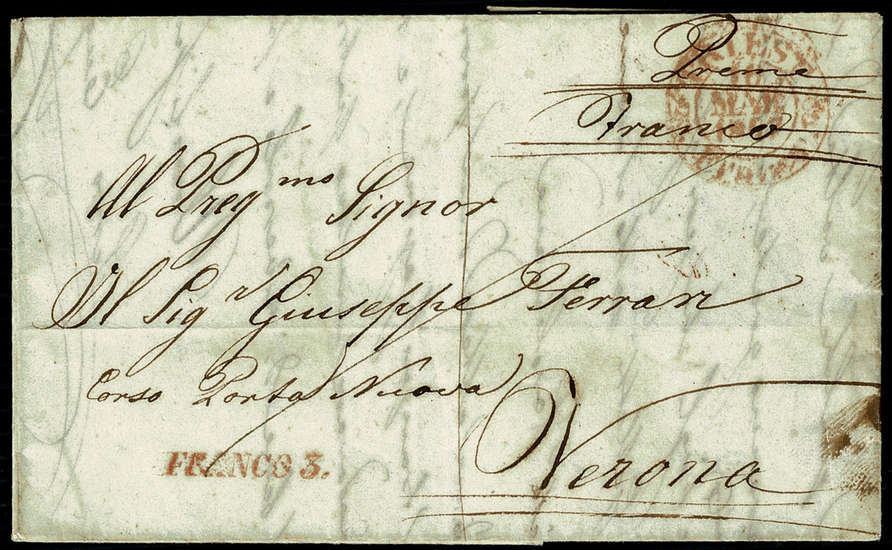 Preme
Franco
Al Preg.mo Signor
Il Sig.r Giuseppe Ferrari
Corso Porta Nuova
Verona
FRANCO 3.